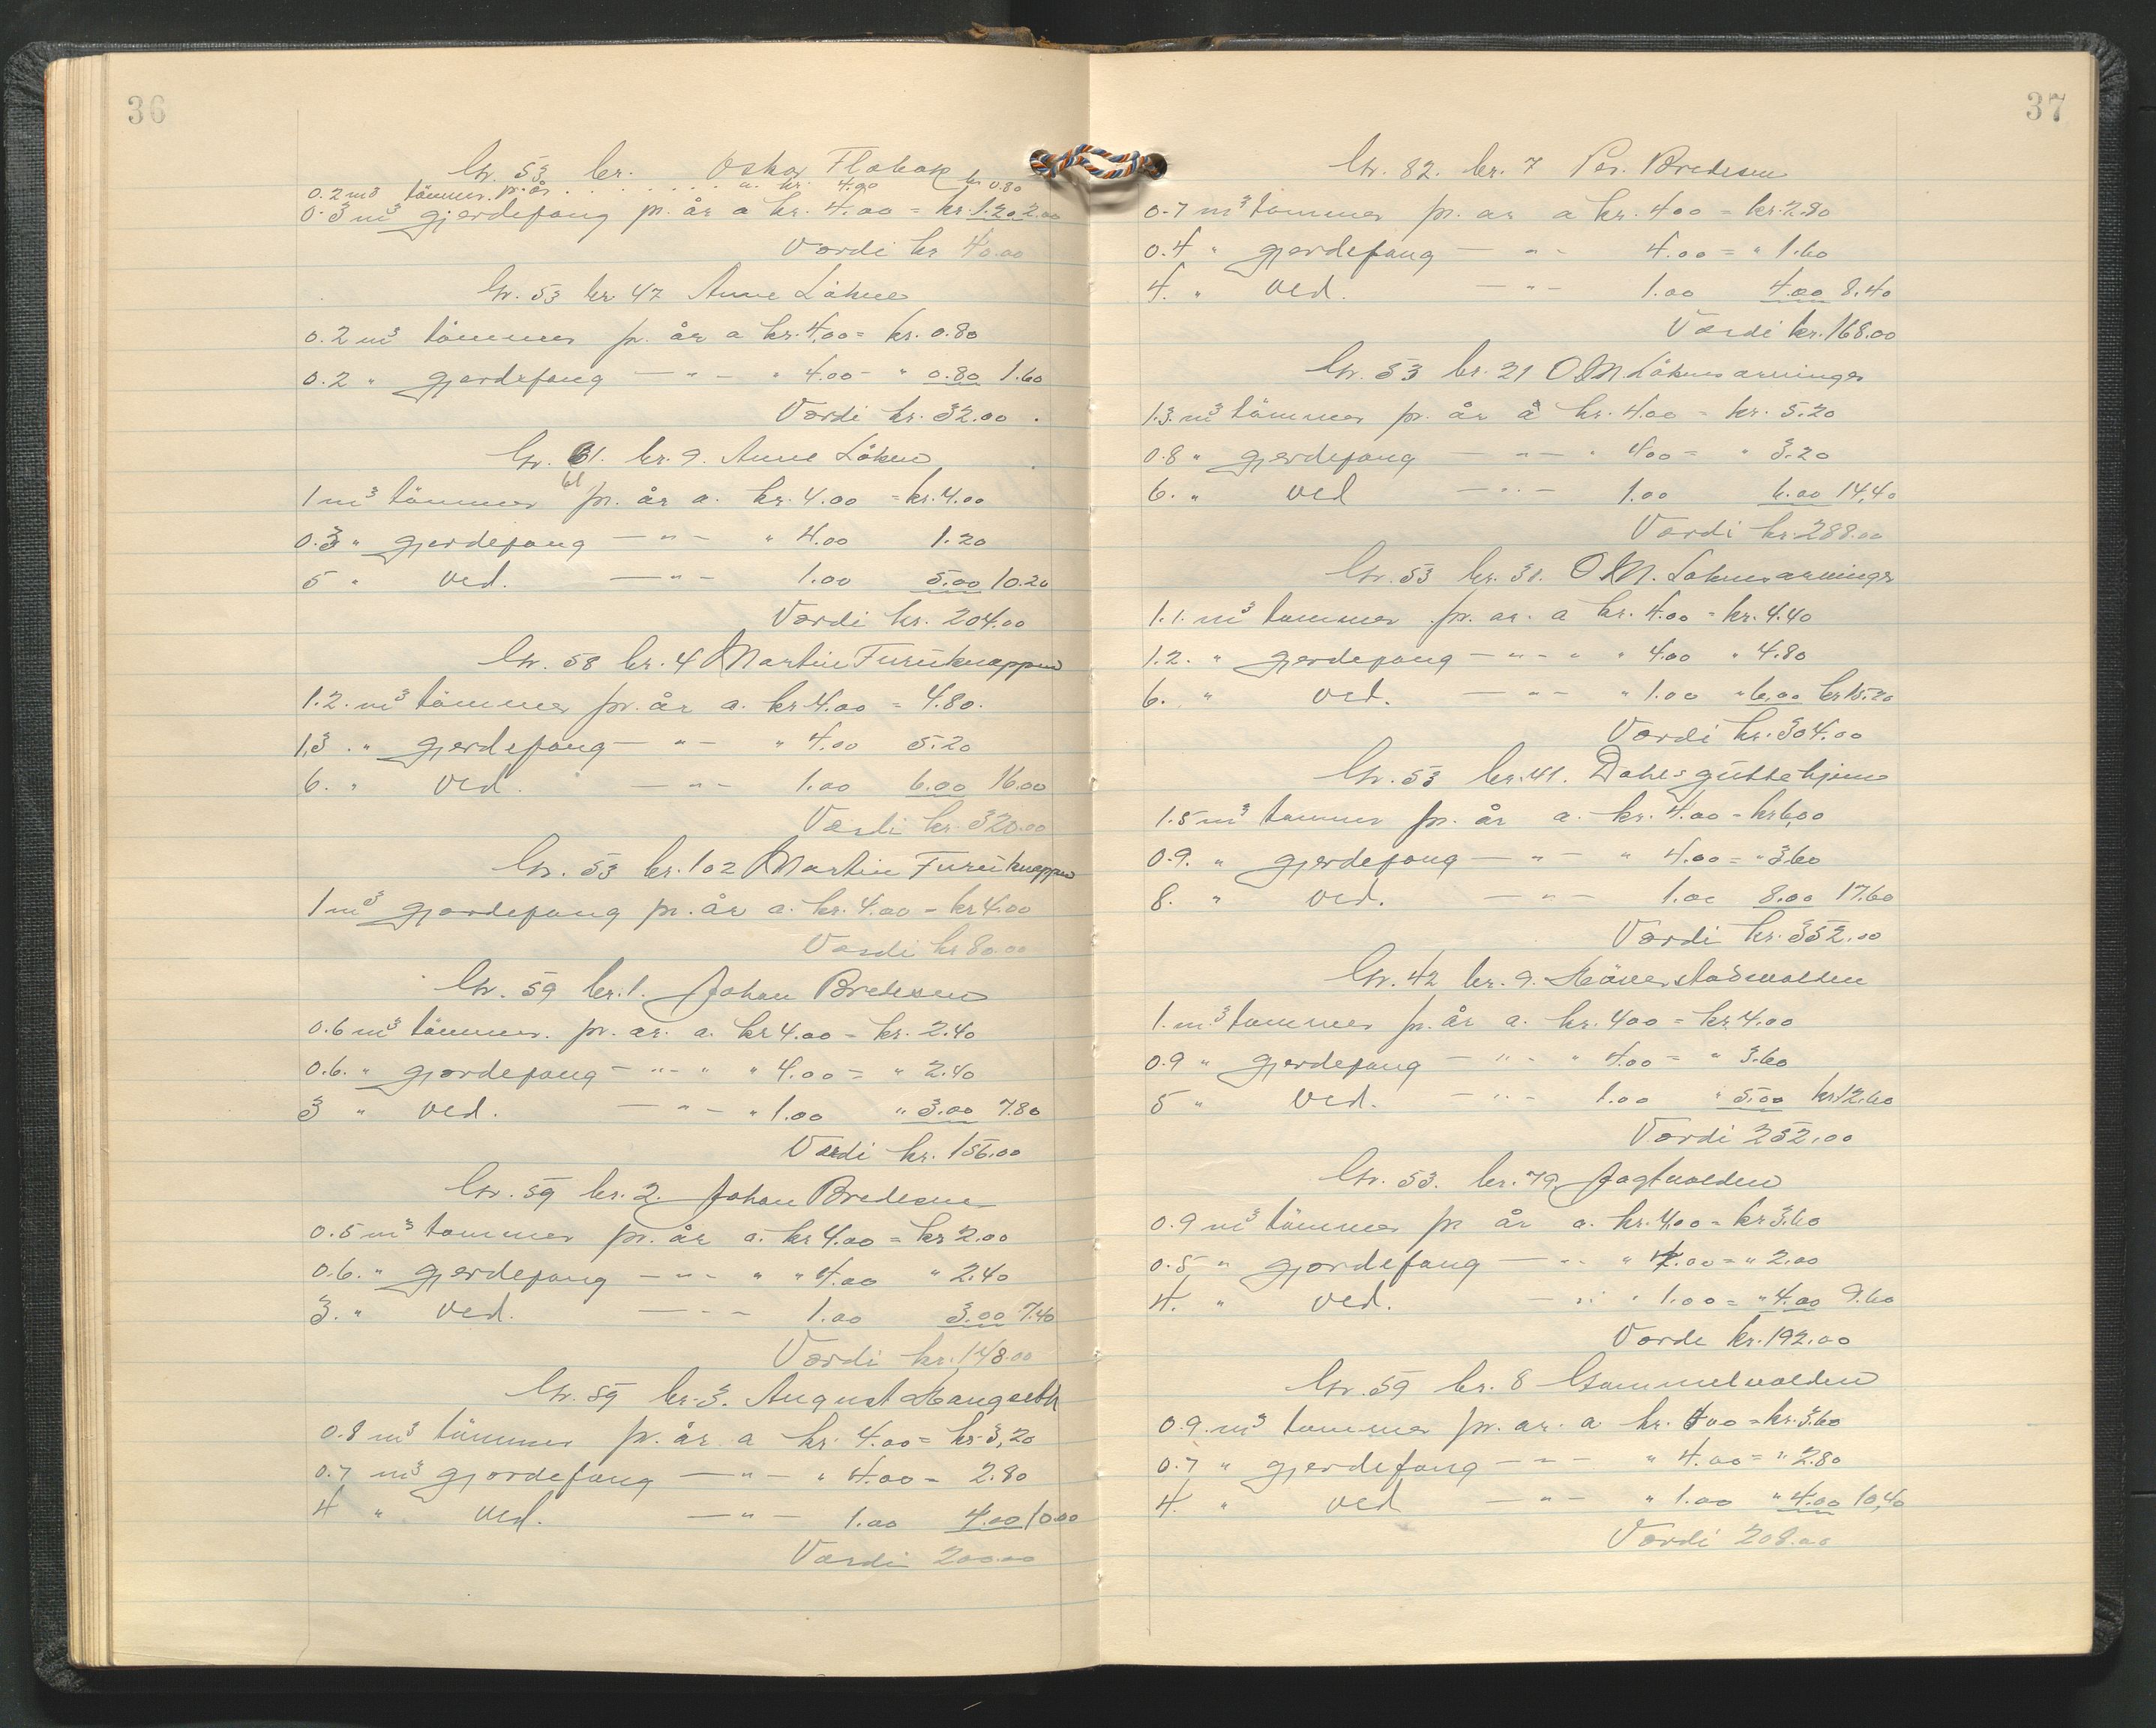 36
Gr. 53 br. Oskar Flobak
0.2 m3 tömmer pr. år . . . . . . . a. kr. 4.00 kr 0.80
0.3 m3 gjerdefang pr. år a kr. 4.00 = kr. 1.20 2.00
Værdi kr 40.00
Gr. 53 br 47 Anne Löken
0.2 m3 tömmer pr. år a kr. 4,00 = kr. 0.80
0.2 " gjerdefang — " — " 4.00 - " 0.80 1.60
Værdi kr. 32.00.
Gr. 61. br. 9. Anne Löken
61
1 m3 tömmer pr. år a. kr. 4.00 = kr. 4.00
0.3 " gjerdefang — " — " 4.00 1.20
5 " Ved. — " — 1.00 5.00 10.20
Værdi kr. 204.00
Gr. 58 br. 4 Martin Furuknappen
1.2. m3 tömmer pr. år a. kr 4.00 = 4.80.
1,3. " gjerdefang — " — " 4.00 5.20
6. " Ved. — " — 1.00 6.00 16.00
Værdi kr. 320.00
Gr. 53 br. 102 Martin Furuknappen
1 m3 gjerdefang pr. år a. kr. 4.00 = kr 4.00
Værdi kr 80.00
Gr. 59 br. 1. Johan Bredesen
0.6 m3 tömmer. pr. ar. a. kr 4.00 = kr. 2.40
0.6. " gjerdefang — " — " " 4.00 = " 2.40
3 " Ved. — " — " 1.00 " 3.00 7.80
Værdi kr. 156.00
Gr. 59 br. 2. Johan Bredesen
0.5 m3 tommer pr. år a. kr 4.00 = kr 2.00
0.6. " gjerdefang — " — " " 4.00 " 2.40
3. " Ved. — " — 1.00 3.00 7.40
Værdi kr. 148.00
Gr. 59 br. 3. August Haugseth
0.8 m3 tömmer pr. år a kr. 4.00 = kr 3,20
0.7 m3 gjerdefang — " — " 4.00 = 2.80
4 " Ved. — " — 1.00 4.00 10.00
Værdi 200.00
37
Gr. 82. br. 7 Per. Bredesen
0.7 m3 tommer pr. ar a kr. 4.00 = kr. 2.80
0.4 " gjerdefang — " — 4.00 = " 1.60
4. " Ved. — " — 1.00 4.00 8.40
Værdi kr. 168.00
Gr. 53 br. 21 O.N. Lökens arvinger
1.3. m3 tömmer pr. år å kr. 4.00 = kr. 5.20
0.8 " gjerdefang — " — " 4.00 = " 3.20
6. " Ved — " — 1.00 6.00 14,40
Værdi kr. 288.00
Gr. 53 br. 31. O.N. Lokens arvinger
1.1. m3 tommer pr. ar. a kr. 4.00 = kr. 4.40
1.2. " gjerdefang — " — " " 4.00 " 4.80
6. " Ved. — " — " 1.00 " 6.00 kr 15.20
Værdi kr. 304.00
Gr. 53 br. 41. Dahls guttehjem
1.5 m3 tommer pr. år a. kr. 4.00 = kr 6,00
0.9. " gjerdefang — " — " 4.00 = " 3.60
8. " Ved. — " — 1.00 8.00 17.60
Værdi kr. 352.00
Gr. 42 br. 9. Häverstadvolden
1. m3 tommer pr. år a. kr. 400 = kr 4.00
0.9 " gjerdefang — " — " 4.00 = " 3.60
5 " Ved. — " — 1.00 " 5.00 kr 12.60
Værdi 252.00
Gr. 53. br. 79 Jagtvolden
0.9 m3 tömmer pr år a. kr. 4,00 = kr 3.60
0.5 " gjerdefang — " — " 4.00 = " 2.00
4. " Ved. — " — " 1.00 = " 4.00 9.60
Værde kr. 192.00
Gr. 59 br. 8 Gammelvolden
0.9. m3 tommer pr. ar. a kr. 400 = kr. 3.60
0.7 " gjerdefang — " — " 4.00 = " 2.80
4. " Ved — " — " 1.00 " 4.00 10,40
Værdi 208.00